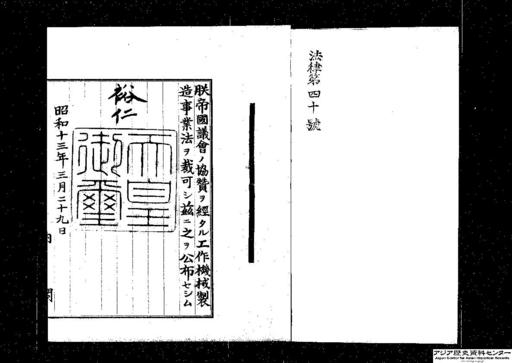 法律第四十號
朕帝國議會ノ協贊ヲ經タル工作機械製
造事業法ヲ裁可シ茲ニ之ヲ公布セシム
裕仁
天皇御璽
昭和十三年三月二十九日
アジア歴史資料センター
Japan Center for Asian Historical Records